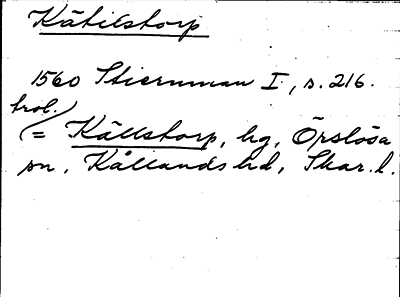 Kätilstorp
1560 Stiernman I, s. 216.
trol.
(= Källstorp, hg, Örslösa
sn, Kållands hd, Skar. l.